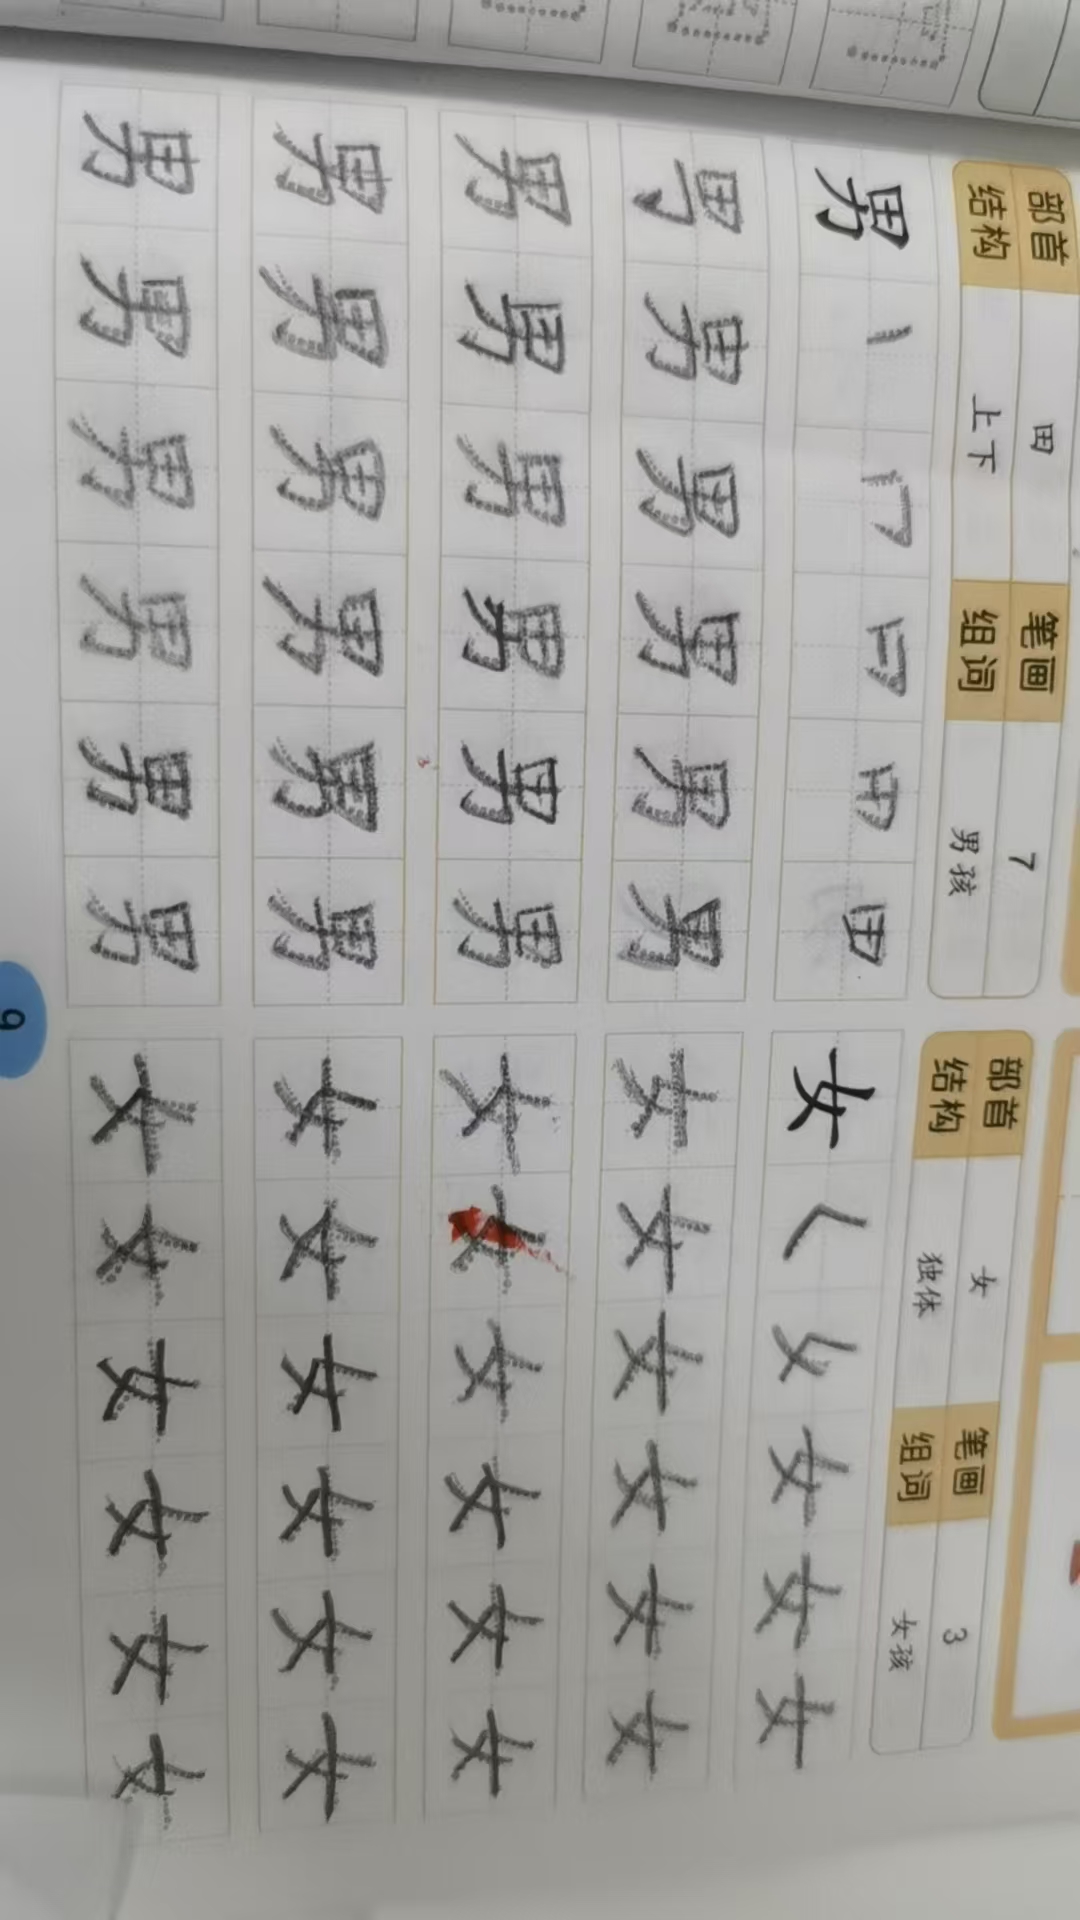 部首 田 笔画 7
结构 上下 组词 男孩
男 丨 冂 田
男 男 男 男 男
男 男 男 男 男 男
男 男 男 男 男 男
男 男 男 男 男 男
部首 女 笔画 3
结构 独体 组词 女孩
女 く 女 女 女
女 女 女 女 女 女
女 女 女 女 女 女
女 女 女 女 女 女
女 女 女 女 女 女
9